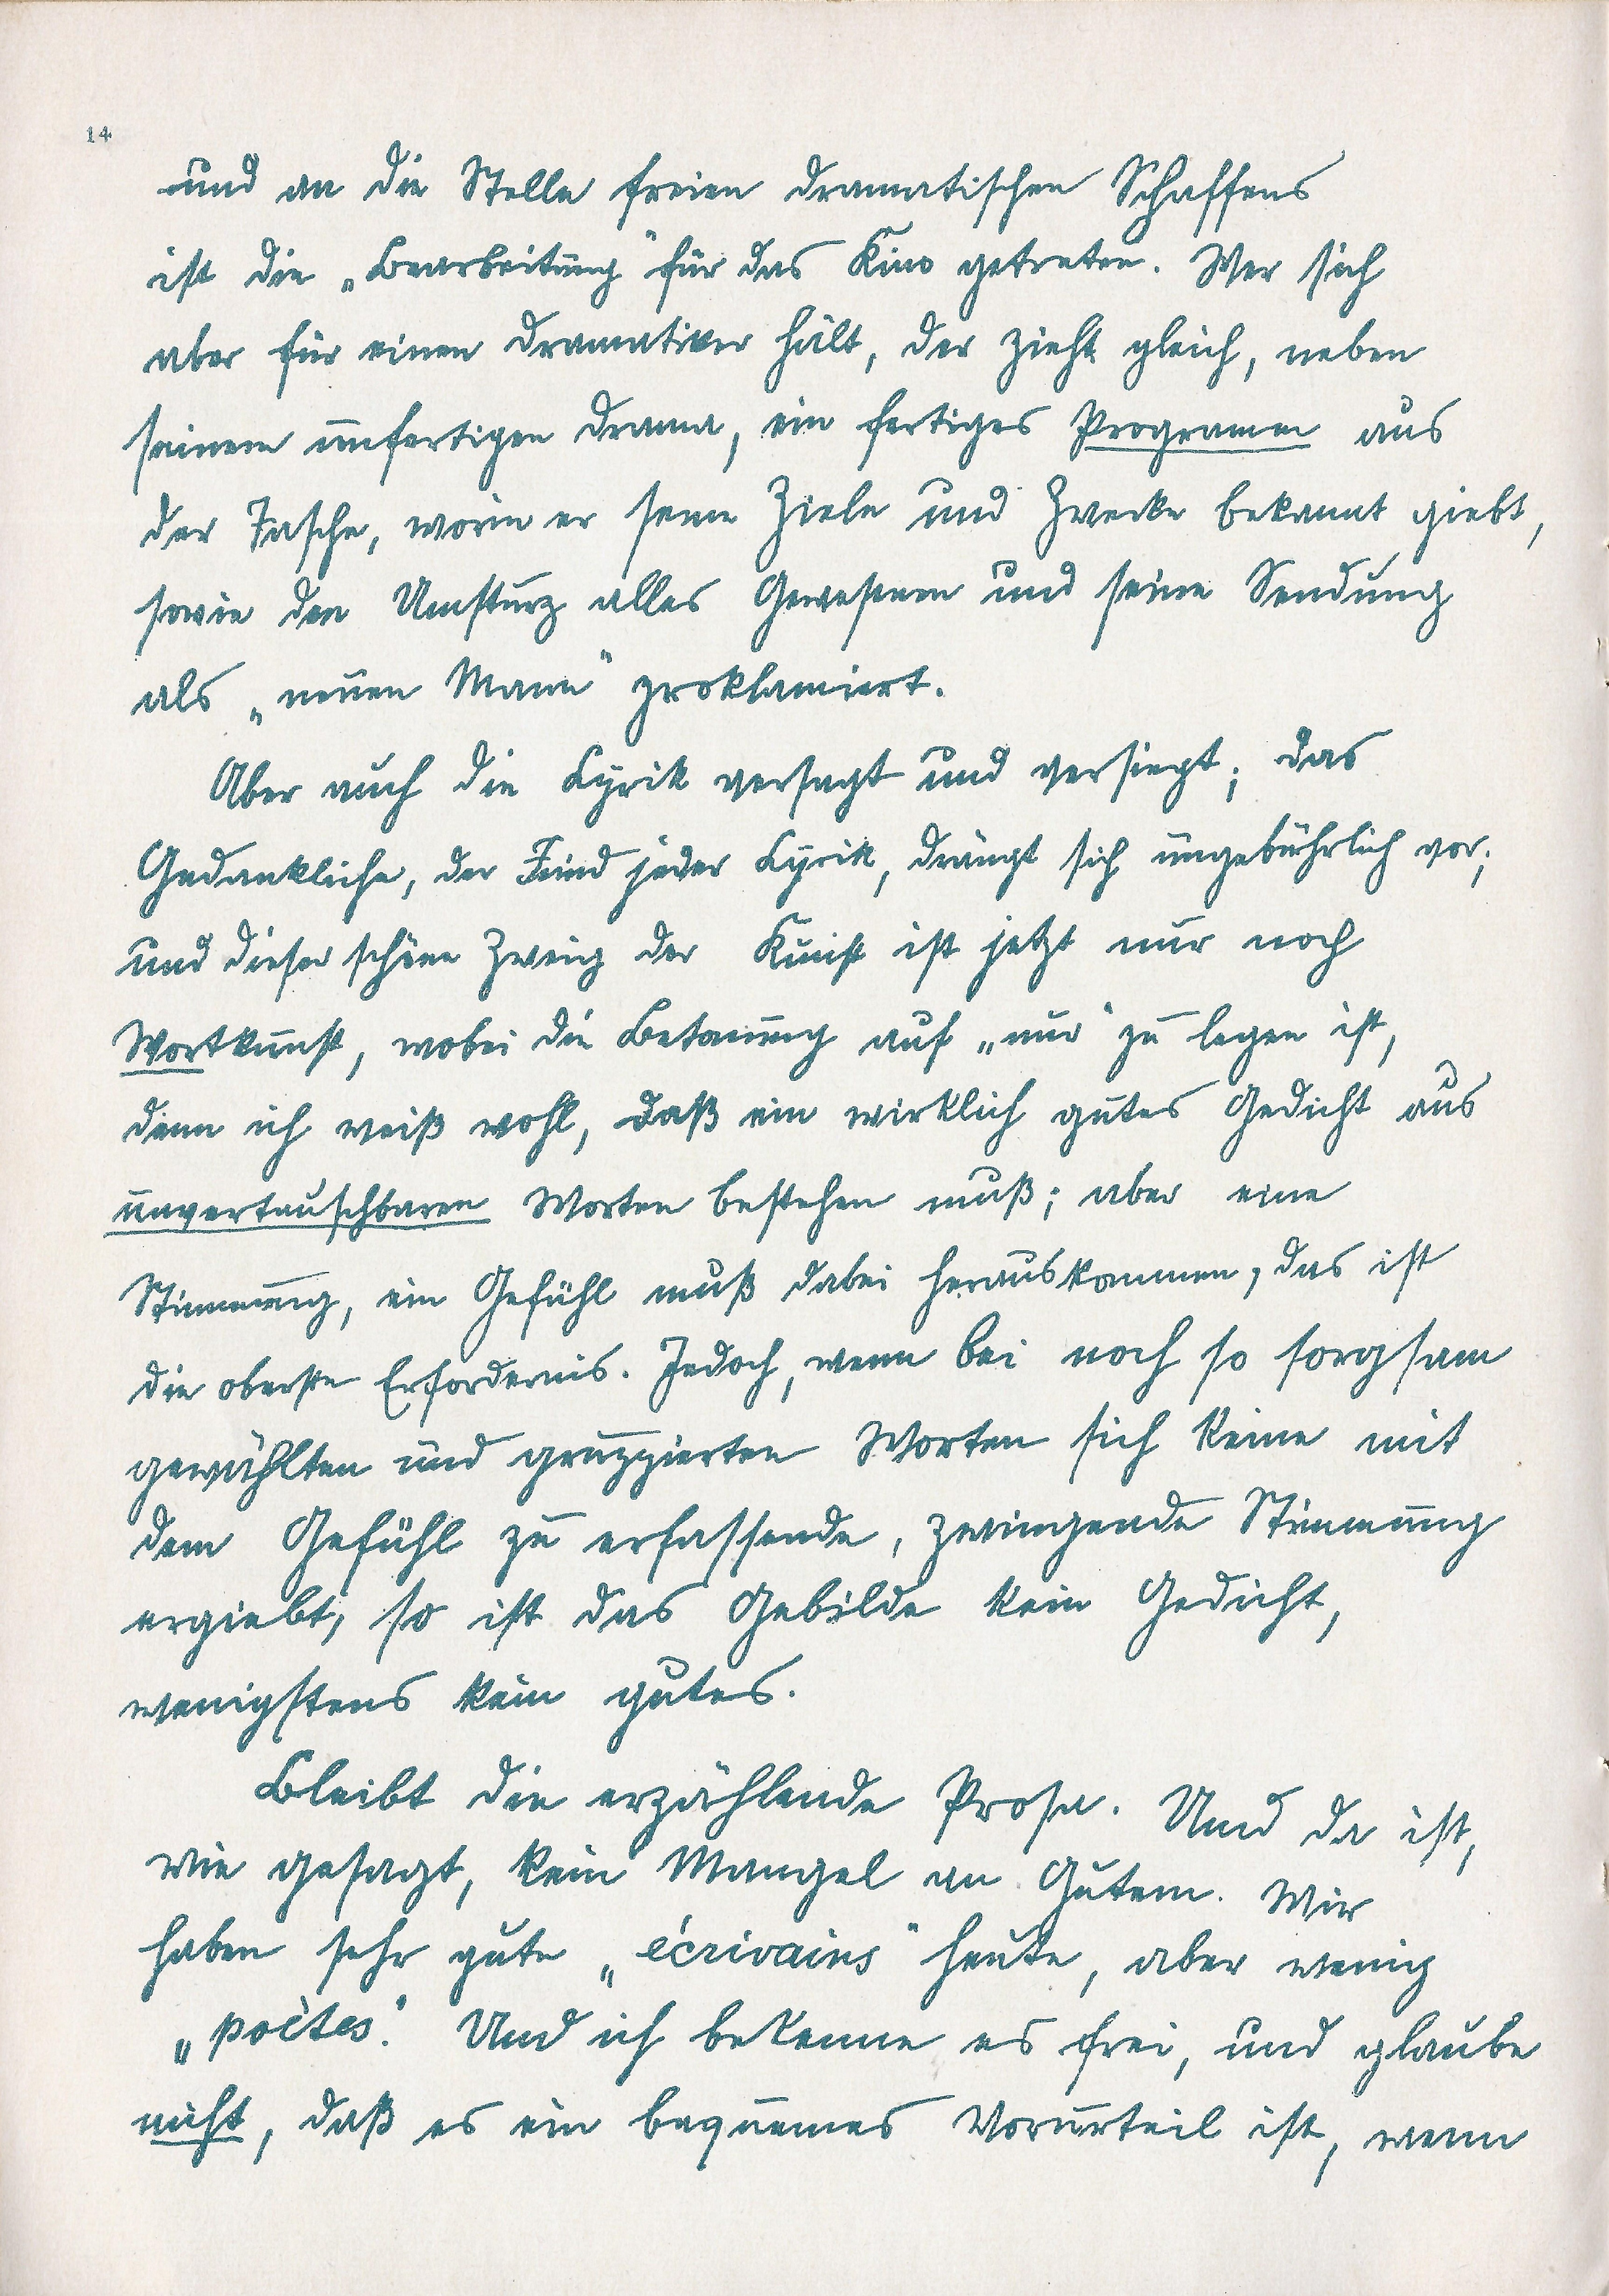 14
und an die Stelle freien dramatischen Schaffens
ist die „Bearbeitung“ für das Kino getreten. Wer sich
aber für einen Dramatiker hält, der zieht gleich, neben
seinem unfertigen Drama, ein fertiges Programm aus
der Tasche, worin er seine Ziele und Zwecke bekannt giebt,
sowie den Umsturz alles Gewesenen und seine Sendung
als „neuen Mann“ proklamiert.
Aber auch die Lyrik versagt und versiegt; das
Gedankliche, der Feind jeder Lyrik, drängt sich ungebührlich vor;
und dieser schöne Zweig der Kunst ist jetzt nur noch
Wortkunst, wobei die Betonung auf „nur“ zu legen ist,
denn ich weiß wohl, daß ein wirklich gutes Gedicht aus
unvertauschbaren Worten bestehen muß; aber eine
Stimmung, ein Gefühl muß dabei herauskommen, das ist
die oberste Erfordernis. Jedoch, wenn bei noch so sorgsam
gewählten und gruppierten Worten sich keine mit
dem Gefühl zu erfassende, zwingende Stimmung
ergiebt, so ist das Gebilde kein Gedicht,
wenigstens kein gutes.
Bleibt die erzählende Prosa. Und da ist,
wie gesagt, kein Mangel an Gutem. Wir
haben sehr gute „écrivains“ heute, aber wenig
„poètes“. Und ich bekenne es frei, und glaube
nicht, daß es ein bequemes Vorurteil ist, wenn